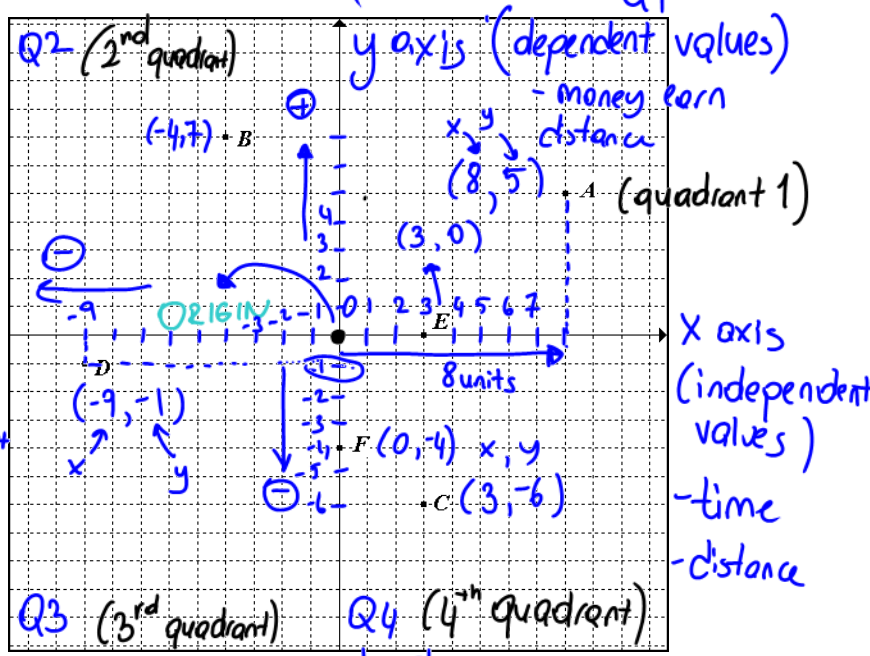 Q2 (2nd quadrant)
y axis (dependent values)
- money earn
distance
+
x y
(-4,7) B
(8,5) A (quadrant 1)
4
3
2
(3,0)
-
-9 ORIGIN -3 -2 -1 0 1 2 3 4 5 6 7
E
X axis
(independent values)
- time
- distance
8 units
D
-1
-2
-3
-4
-5
-6
(-9,-1)
x y
F (0,-4) x, y
-
C (3,-6)
Q3 (3rd quadrant)
Q4 (4th quadrant)